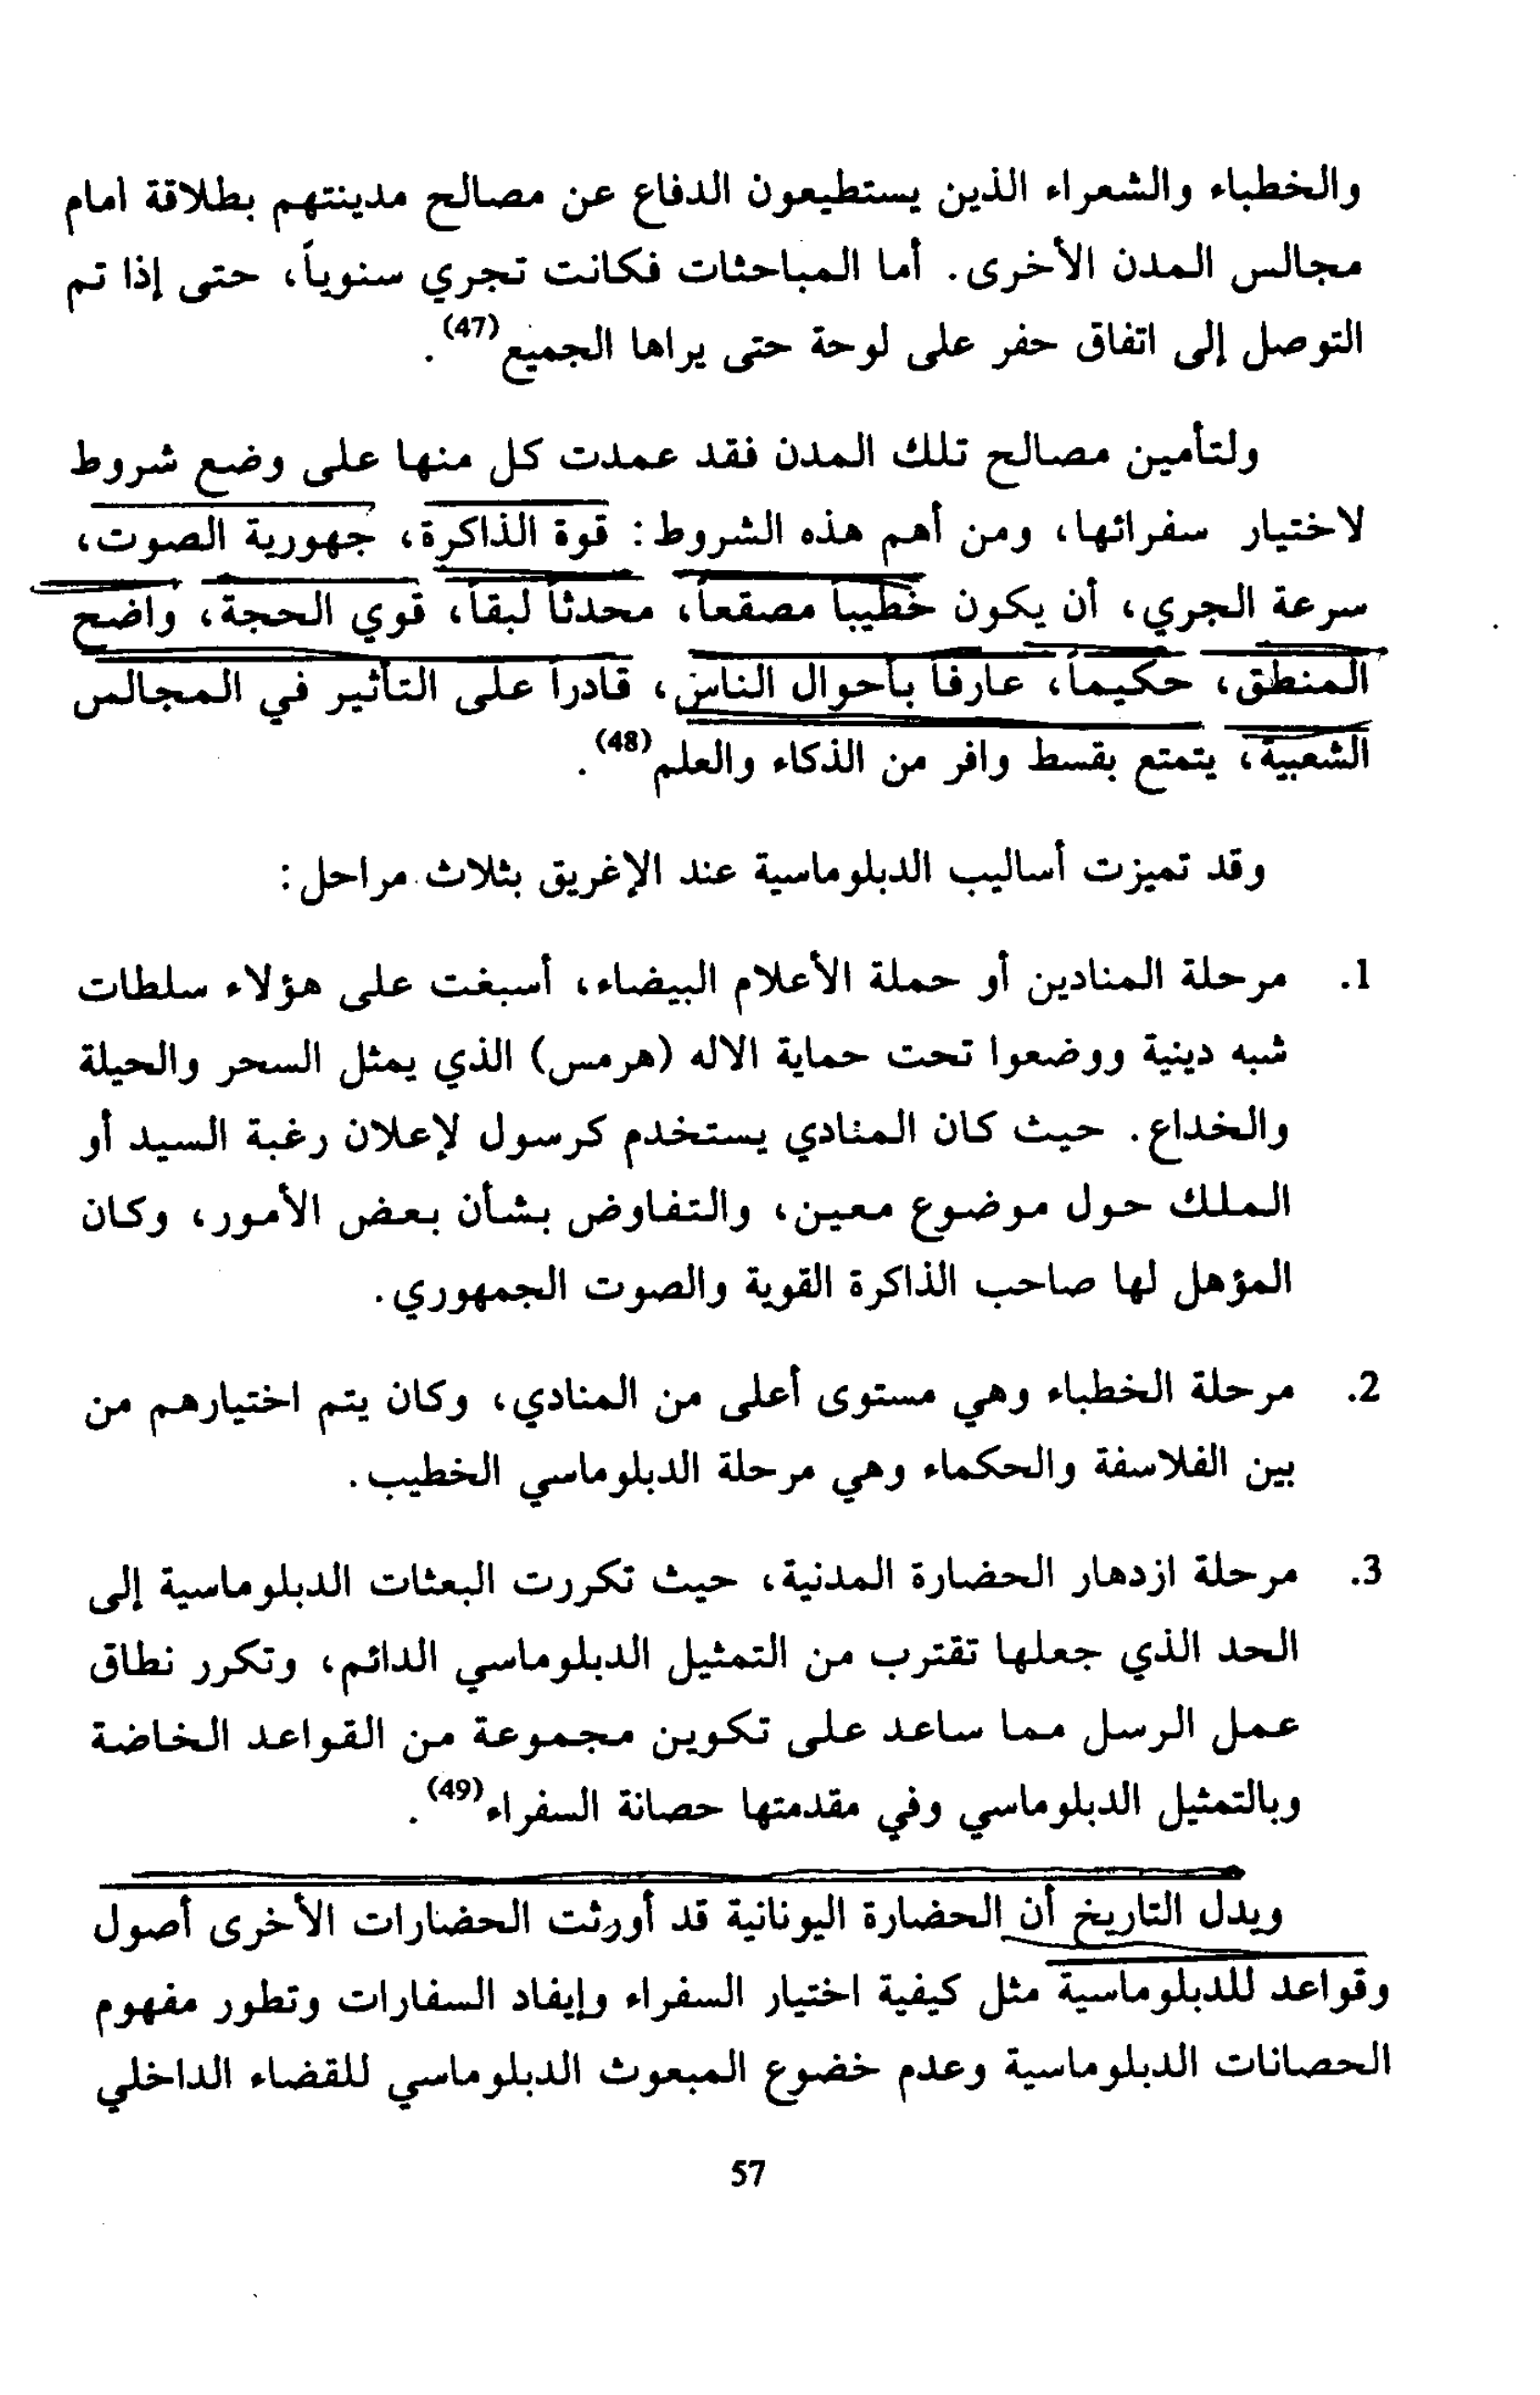 والخطباء والشعراء الذين يستطيعون الدفاع عن مصالح مدينتهم بطلاقة امام
مجالس المدن الأخرى. أما المباحثات فكانت تجري سنوياً، حتى إذا تم
التوصل إلى اتفاق حفر على لوحة حتى يراها الجميع(47).
ولتأمين مصالح تلك المدن فقد عمدت كل منها على وضع شروط
لاختيار سفرائها، ومن أهم هذه الشروط: قوة الذاكرة، جهورية الصوت،
سرعة الجري، أن يكون خطيباً مصقعاً، محدثاً لبقاً، قوي الحجة، واضح
المنطق، حكيماً، عارفاً بأحوال الناس، قادراً على التأثير في المجالس
الشعبية، يتمتع بقسط وافر من الذكاء والعلم(48).
وقد تميزت أساليب الدبلوماسية عند الإغريق بثلاث مراحل:
1. مرحلة المنادين أو حملة الأعلام البيضاء، أسبغت على هؤلاء سلطات
شبه دينية ووضعوا تحت حماية الاله (هرمس) الذي يمثل السحر والحيلة
والخداع. حيث كان المنادي يستخدم كرسول لإعلان رغبة السيد أو
الملك حول موضوع معين، والتفاوض بشأن بعض الأمور، وكان
المؤهل لها صاحب الذاكرة القوية والصوت الجمهوري.
2. مرحلة الخطباء وهي مستوى أعلى من المنادي، وكان يتم اختيارهم من
بين الفلاسفة والحكماء وهي مرحلة الدبلوماسي الخطيب.
3. مرحلة ازدهار الحضارة المدنية، حيث تكررت البعثات الدبلوماسية إلى
الحد الذي جعلها تقترب من التمثيل الدبلوماسي الدائم، وتكرر نطاق
عمل الرسل مما ساعد على تكوين مجموعة من القواعد الخاضة
وبالتمثيل الدبلوماسي وفي مقدمتها حصانة السفراء(49).
ويدل التاريخ أن الحضارة اليونانية قد أورثت الحضارات الأخرى أصول
وقواعد للدبلوماسية مثل كيفية اختيار السفراء وإيفاد السفارات وتطور مفهوم
الحصانات الدبلوماسية وعدم خضوع المبعوث الدبلوماسي للقضاء الداخلي
57